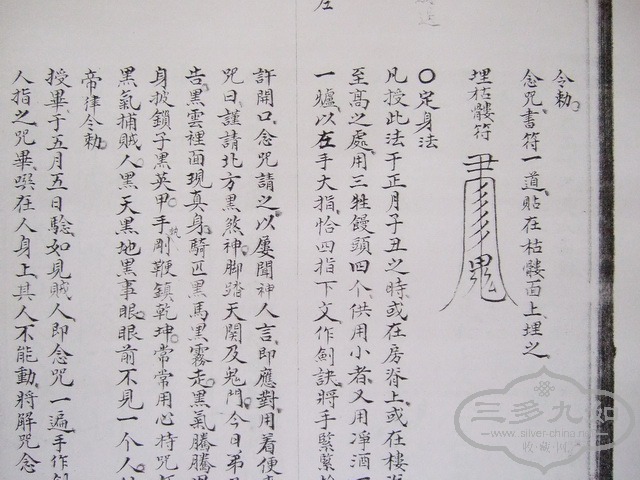 令勅
念咒書符一道貼在枯髏面上埋之
埋枯髏符
鬼
〇定身法
凡授此法于正月子丑之時或在房脊上或在樓
至高之處用三牲饅頭四个供用小者又用渾酒一
一爐以左手大指恰四指下文作劍訣將手緊緊
左
許開口念咒請之以屡聞神人言即應對用着便
咒曰謹請北方黑煞神脚踏天関及鬼門今日弟
告黑雲裡面現真身騎匹黑馬黑霧走黑氣騰騰
身披鎖子黑英甲手執剛鞭鎮乾坤常常用心持咒
黑氣捕賊人黑天黑地黑事眼眼前不見一个人
帝律令勅
授畢于五月五日驗如見賊人即念咒一遍手作劍
人指之咒畢噀在人身上其人不能動將解咒念
三多九如